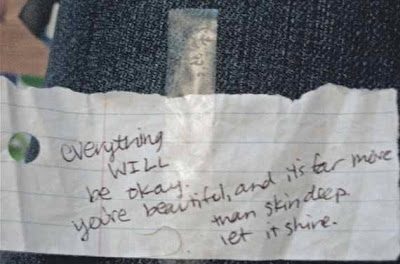 everything
WILL
be okay..
you're beautiful, and it's far more
than skin deep
let it shine.